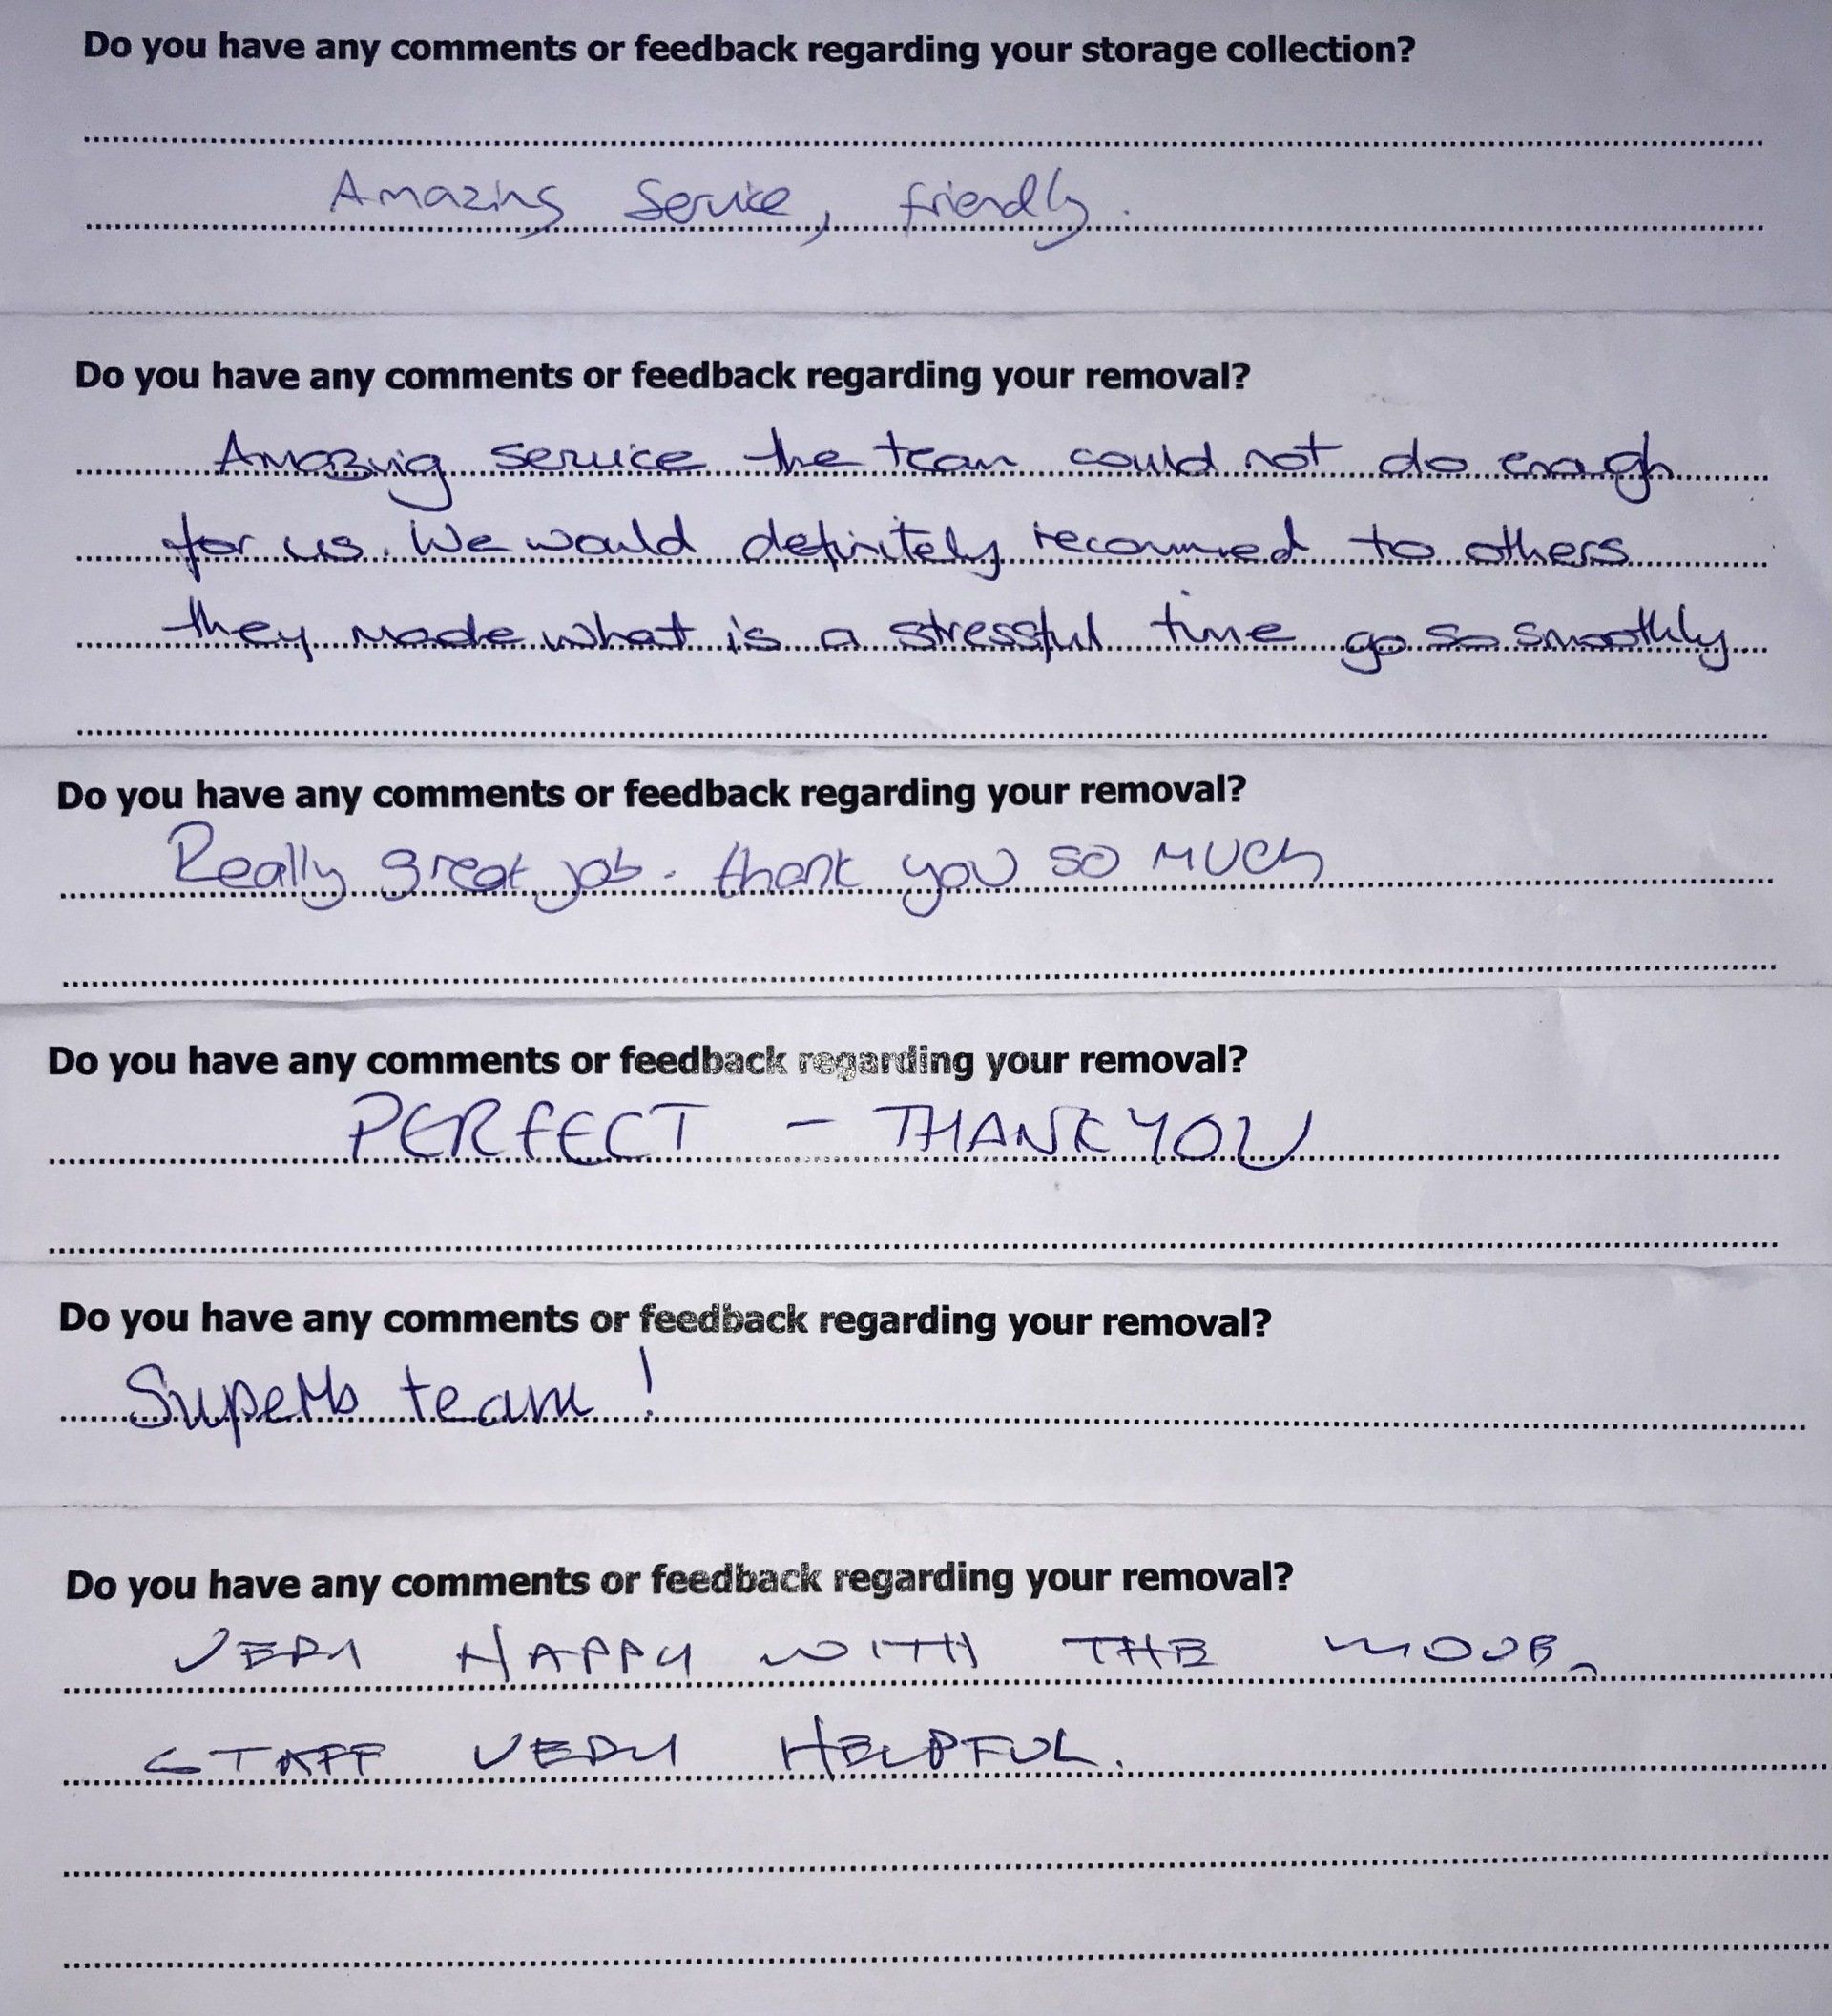 Do you have any comments or feedback regarding your storage collection?
Amazing Service, friendly.
Do you have any comments or feedback regarding your removal?
Amazing service the team could not do enough
for us. We would definitely recommend to others
they made what is a stressful time go so smoothly
Do you have any comments or feedback regarding your removal?
Really great job. thank you so much
Do you have any comments or feedback regarding your removal?
PERFECT - THANK YOU
Do you have any comments or feedback regarding your removal?
Superb team!
Do you have any comments or feedback regarding your removal?
VERY HAPPY WITH THE MOVE.
STAFF VERY HELPFUL.